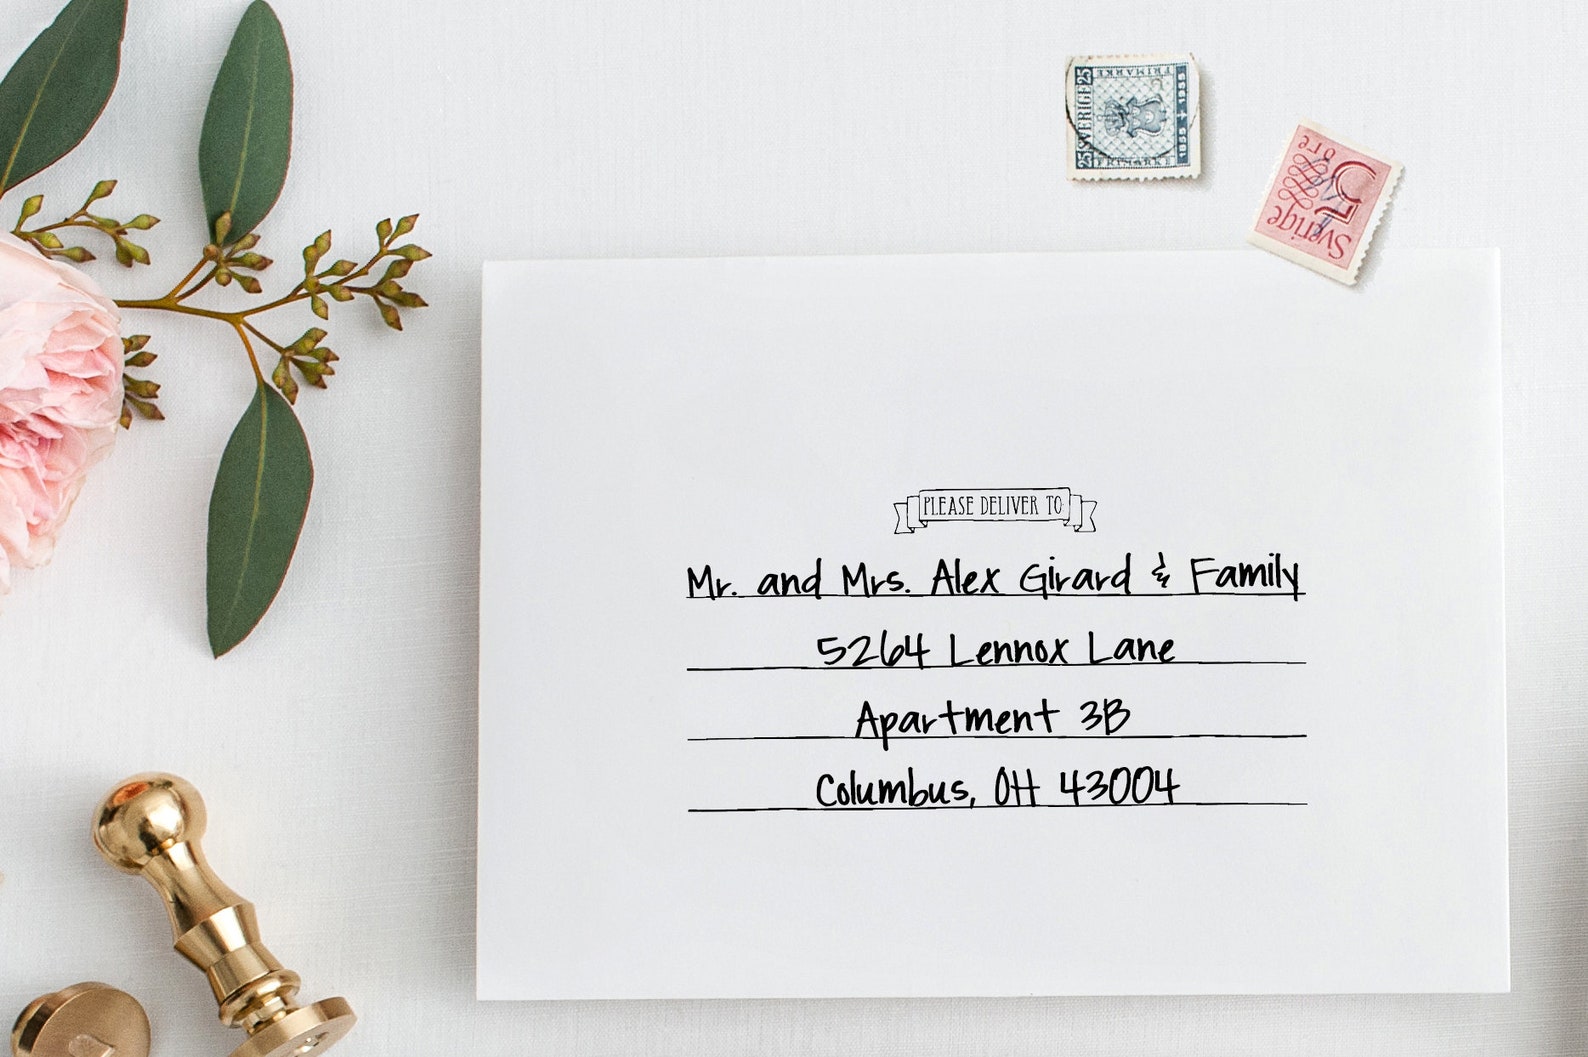 25 SVERIGE 25
FRIMÄRKE
1855 + 1955
FRIMÄRKE
ÖRE
5
Sverige
PLEASE DELIVER TO
Mr. and Mrs. Alex Girard & Family
5264 Lennox Lane
Apartment 3B
Columbus, OH 43004